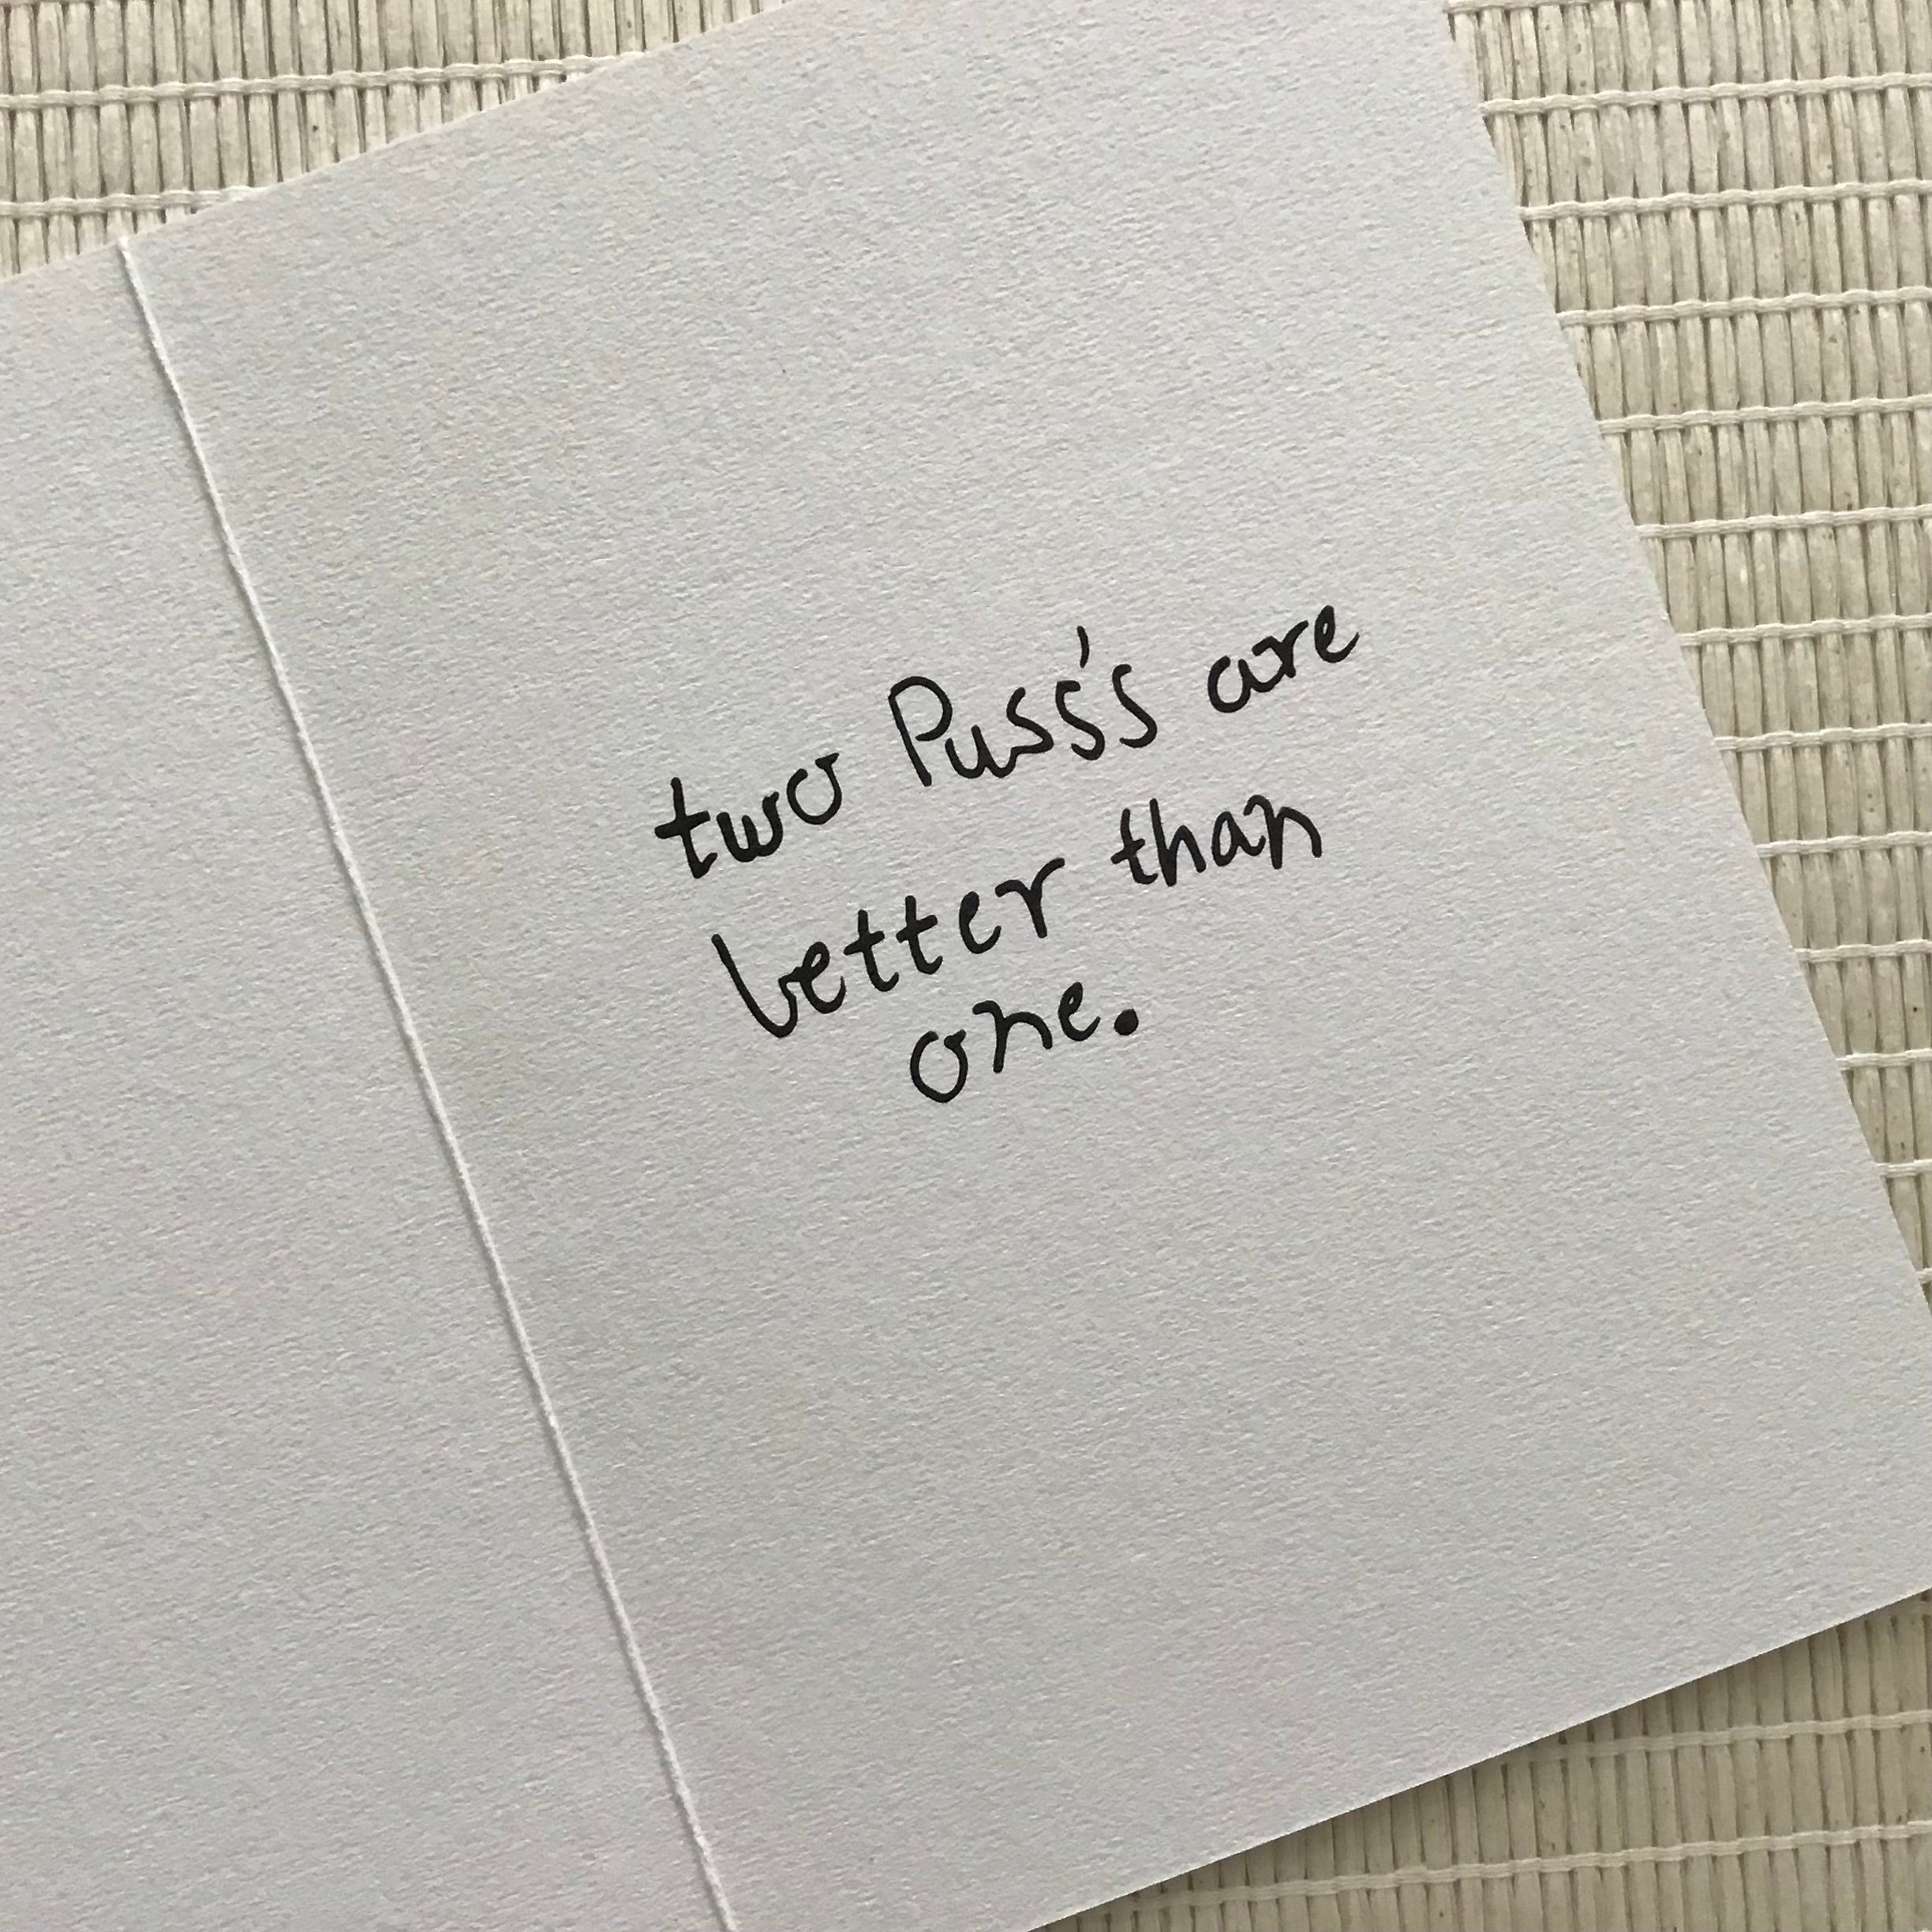 two Puss's are
better than
one.